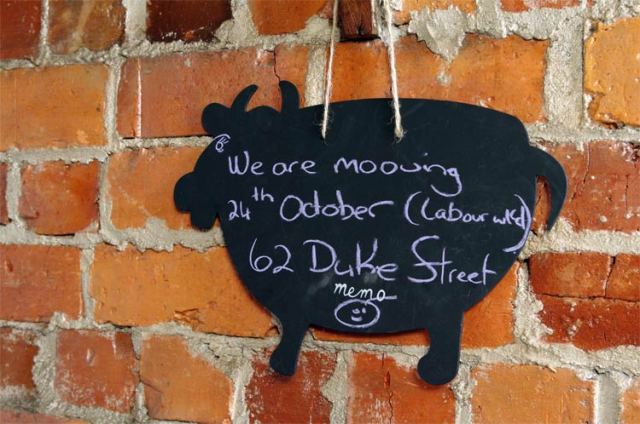 "We are mooving
24th October (Labour wkd)
62 Duke Street
memo